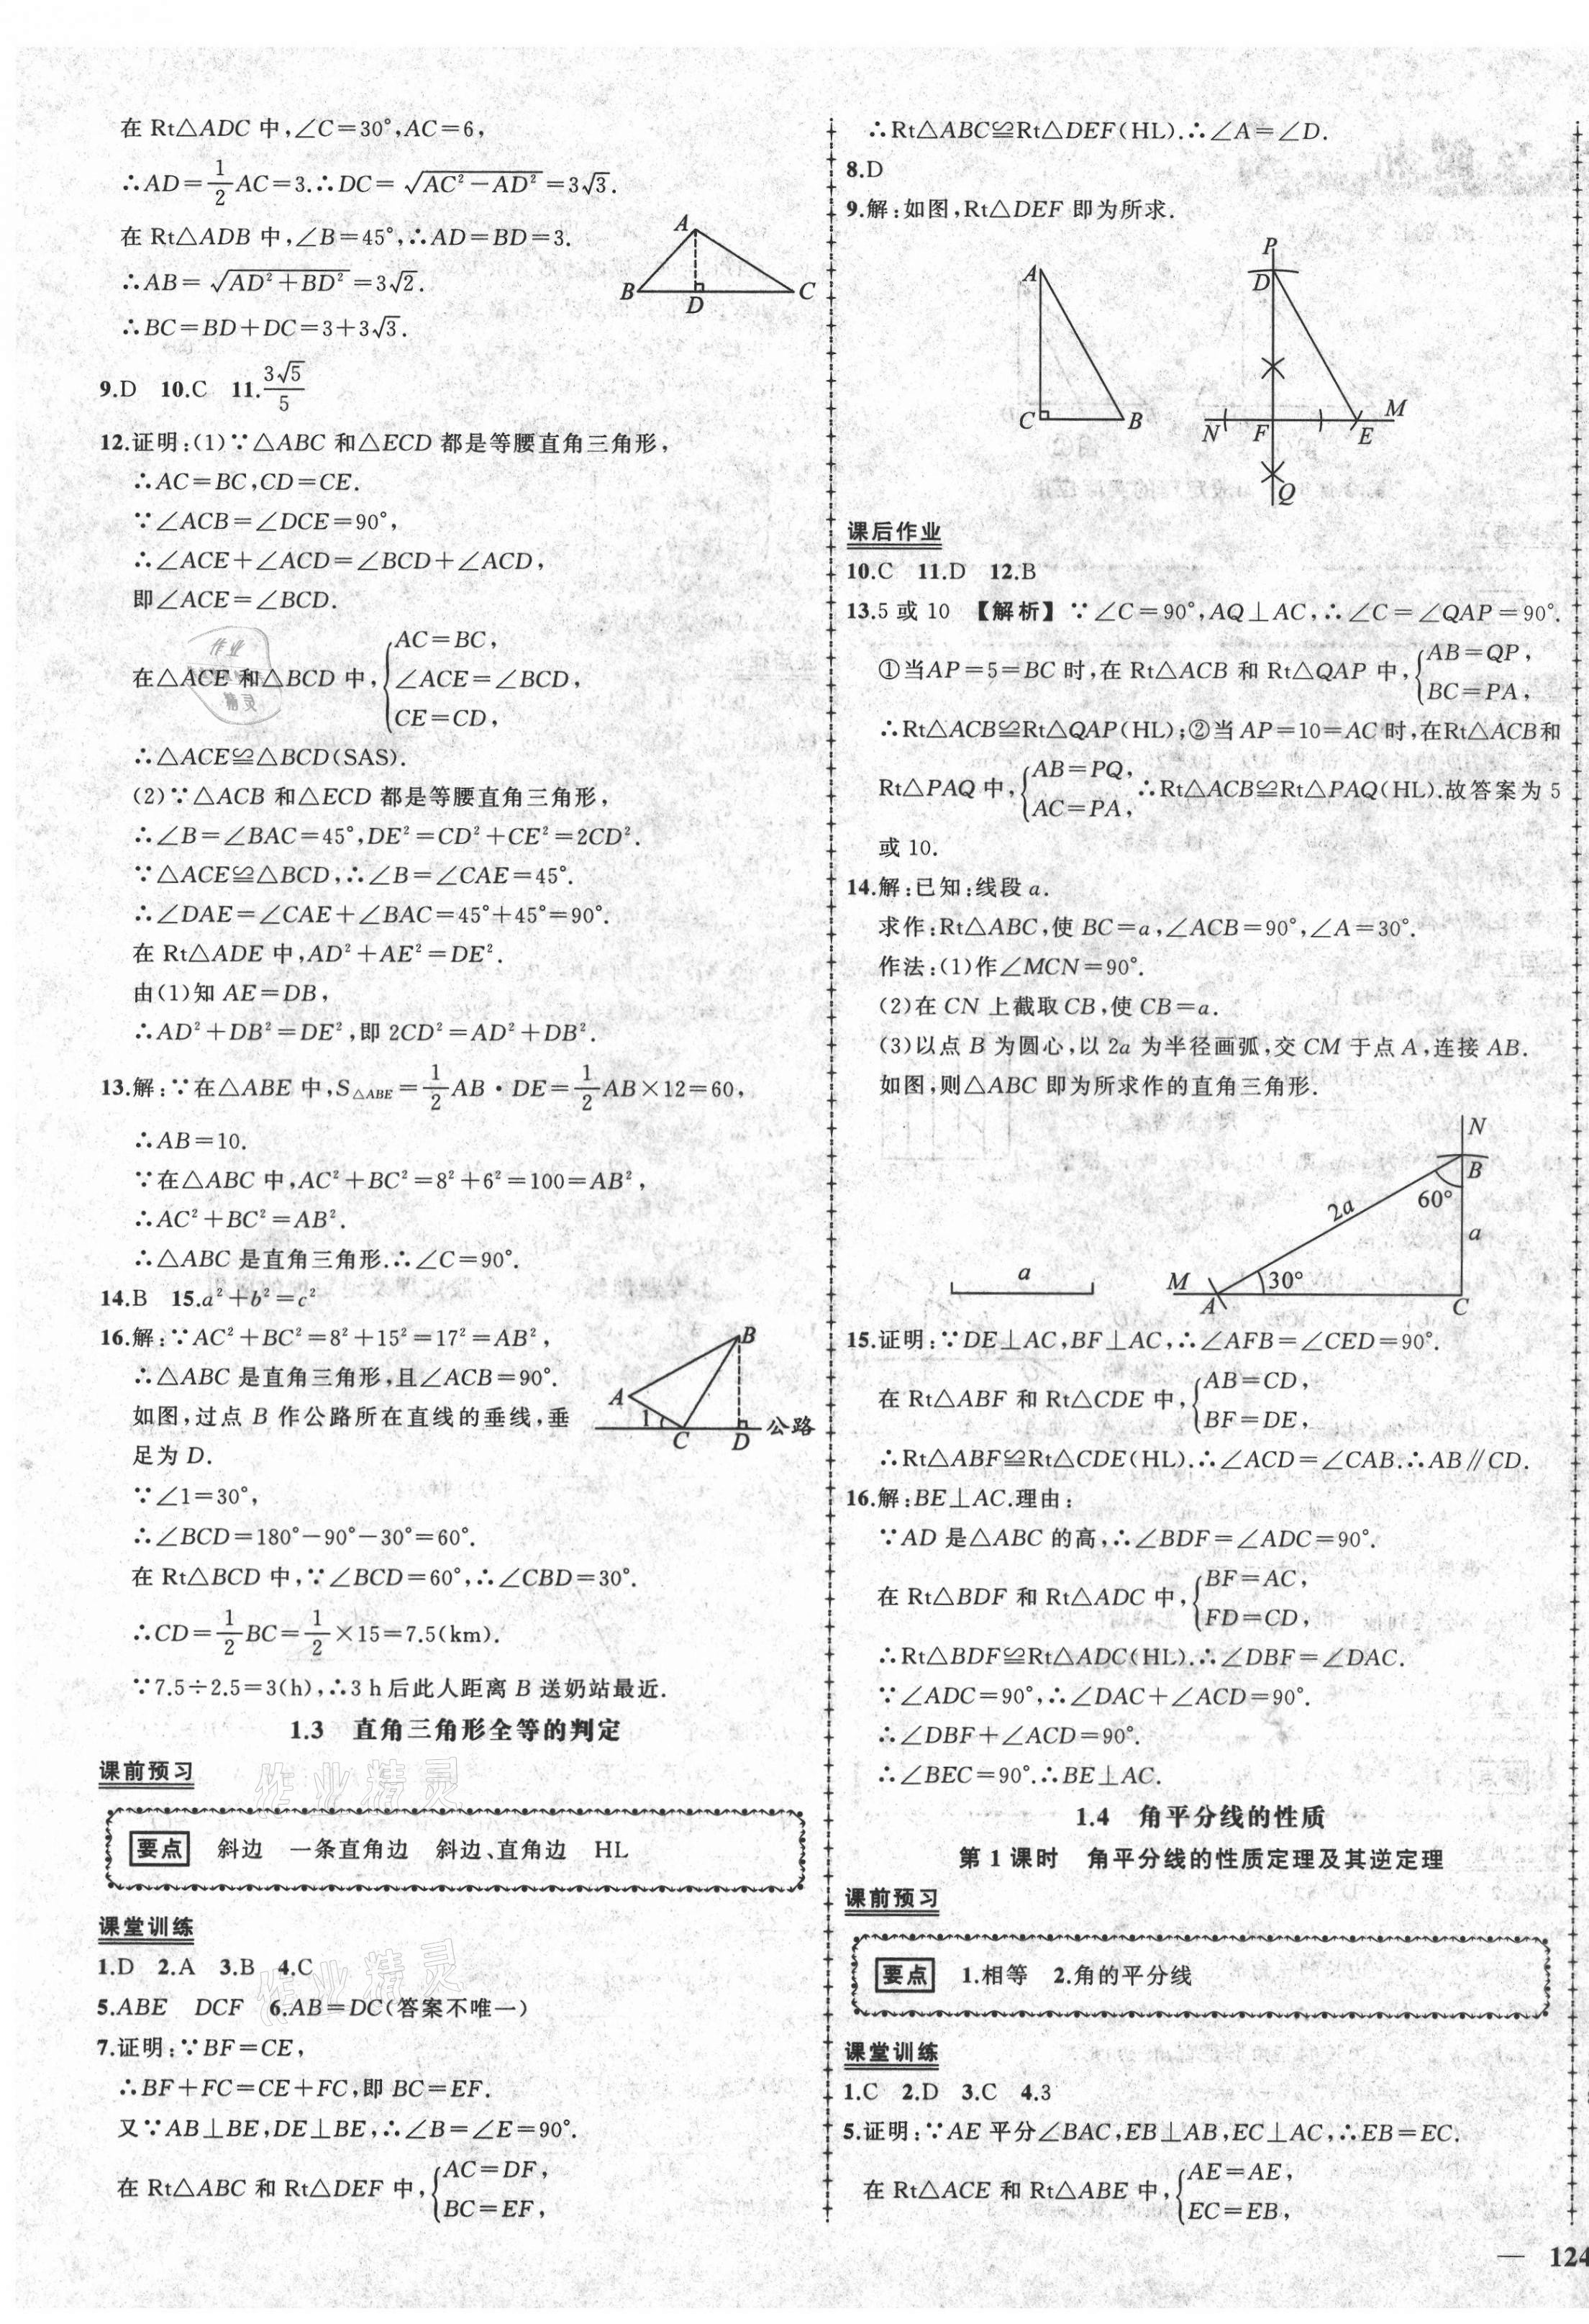 在 Rt△ADC 中,∠C=30°,AC=6,
∴AD=1/2 AC=3.∴DC=√(AC²-AD²)=3√3.
在 Rt△ADB 中,∠B=45°,∴AD=BD=3.
∴AB=√(AD²+BD²)=3√2.
∴BC=BD+DC=3+3√3.
A
B
D
C
9.D 10.C 11.3√5/5
12.证明:(1)∵△ABC 和△ECD 都是等腰直角三角形,
∴AC=BC,CD=CE.
∵∠ACB=∠DCE=90°,
∴∠ACE+∠ACD=∠BCD+∠ACD,
即∠ACE=∠BCD.
在△ACE 和△BCD 中,{AC=BC,
∠ACE=∠BCD,
CE=CD,
∴△ACE≌△BCD(SAS).
(2)∵△ACB 和△ECD 都是等腰直角三角形,
∴∠B=∠BAC=45°,DE²=CD²+CE²=2CD².
∵△ACE≌△BCD,∴∠B=∠CAE=45°.
∴∠DAE=∠CAE+∠BAC=45°+45°=90°.
在 Rt△ADE 中,AD²+AE²=DE².
由(1)知 AE=DB,
∴AD²+DB²=DE²,即 2CD²=AD²+DB².
13.解:∵在△ABE 中,S△ABE=1/2 AB·DE=1/2 AB×12=60,
∴AB=10.
∵在△ABC 中,AC²+BC²=8²+6²=100=AB²,
∴AC²+BC²=AB².
∴△ABC 是直角三角形.∴∠C=90°.
14.B 15.a²+b²=c²
16.解:∵AC²+BC²=8²+15²=17²=AB²,
∴△ABC 是直角三角形,且∠ACB=90°.
如图,过点 B 作公路所在直线的垂线,垂
足为 D.
B
A
1
C
D
公路
∵∠1=30°,
∴∠BCD=180°-90°-30°=60°.
在 Rt△BCD 中,∵∠BCD=60°,∴∠CBD=30°.
∴CD=1/2 BC=1/2×15=7.5(km).
∵7.5÷2.5=3(h),∴3 h 后此人距离 B 送奶站最近.
1.3 直角三角形全等的判定
课前预习
要点 斜边 一条直角边 斜边、直角边 HL
课堂训练
1.D 2.A 3.B 4.C
5.ABE DCF 6.AB=DC(答案不唯一)
7.证明:∵BF=CE,
∴BF+FC=CE+FC,即 BC=EF.
又∵AB⊥BE,DE⊥BE,∴∠B=∠E=90°.
在 Rt△ABC 和 Rt△DEF 中,{AC=DF,
BC=EF,
作业
精灵
作业精灵
作业精灵
∴Rt△ABC≌Rt△DEF(HL).∴∠A=∠D.
8.D
9.解:如图,Rt△DEF 即为所求.
A
C
B
P
D
N
F
E
M
Q
课后作业
10.C 11.D 12.B
13.5 或 10 【解析】∵∠C=90°,AQ⊥AC,∴∠C=∠QAP=90°.
①当AP=5=BC 时,在 Rt△ACB 和 Rt△QAP 中,{AB=QP,
BC=PA,
∴Rt△ACB≌Rt△QAP(HL);②当 AP=10=AC 时,在Rt△ACB和
Rt△PAQ 中,{AB=PQ,
AC=PA, ∴Rt△ACB≌Rt△PAQ(HL).故答案为 5
或 10.
14.解:已知:线段 a.
求作:Rt△ABC,使 BC=a,∠ACB=90°,∠A=30°.
作法:(1)作∠MCN=90°.
(2)在 CN 上截取 CB,使 CB=a.
(3)以点 B 为圆心,以 2a 为半径画弧,交 CM 于点 A,连接 AB.
如图,则△ABC 即为所求作的直角三角形.
N
B
60°
2a
a
a
M
A
30°
C
15.证明:∵DE⊥AC,BF⊥AC,∴∠AFB=∠CED=90°.
在 Rt△ABF 和 Rt△CDE 中,{AB=CD,
BF=DE,
∴Rt△ABF≌Rt△CDE(HL).∴∠ACD=∠CAB.∴AB∥CD.
16.解:BE⊥AC.理由:
∵AD 是△ABC 的高,∴∠BDF=∠ADC=90°.
在 Rt△BDF 和 Rt△ADC 中,{BF=AC,
FD=CD,
∴Rt△BDF≌Rt△ADC(HL).∴∠DBF=∠DAC.
∵∠ADC=90°,∴∠DAC+∠ACD=90°.
∴∠DBF+∠ACD=90°.
∴∠BEC=90°.∴BE⊥AC.
1.4 角平分线的性质
第 1 课时 角平分线的性质定理及其逆定理
课前预习
要点 1.相等 2.角的平分线
课堂训练
1.C 2.D 3.C 4.3
5.证明:∵AE 平分∠BAC,EB⊥AB,EC⊥AC,∴EB=EC.
在 Rt△ACE 和 Rt△ABE 中,{AE=AE,
EC=EB,
— 124